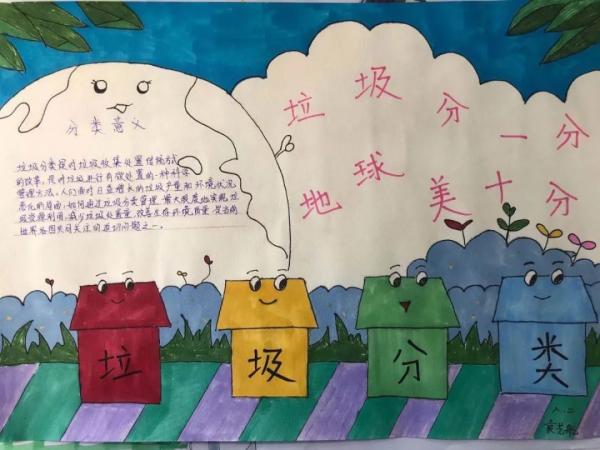 垃圾分一分
地球美十分
分类意义
垃圾分类是对垃圾收集处置传统方式
的改革，是对垃圾进行有效处置的一种科学
管理方法。人们面对日益增长的垃圾产量和环境状况
恶化的局面，如何通过垃圾分类管理，最大限度地实现垃
圾资源利用，减少垃圾处置量，改善生存环境质量，是当前
世界各国共同关注的迫切问题之一。
垃 圾 分 类
八.二